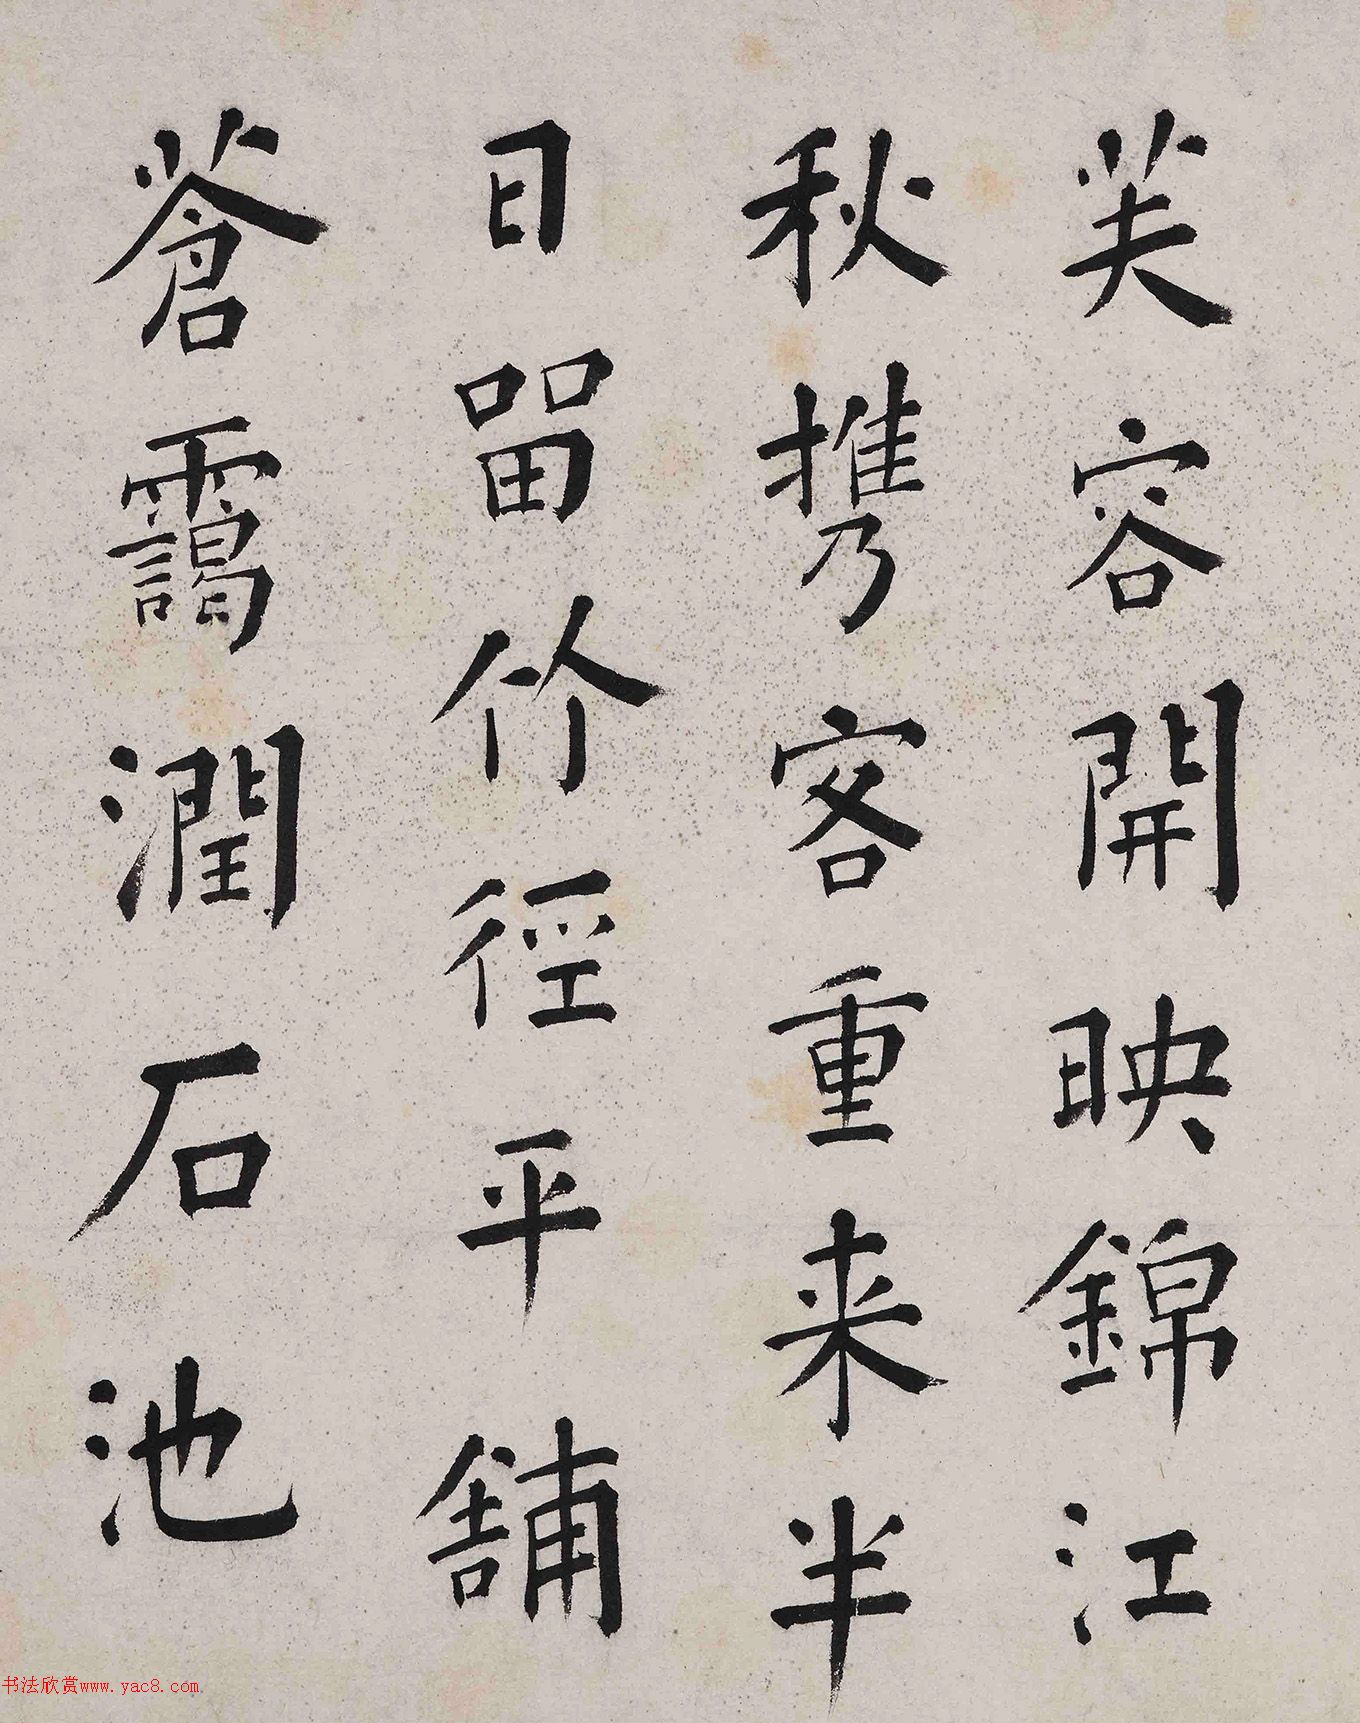 芙容開映錦江
秋携客重来半
日畱竹徑平舖
蒼靄潤石池
书法欣赏www.yac8.com